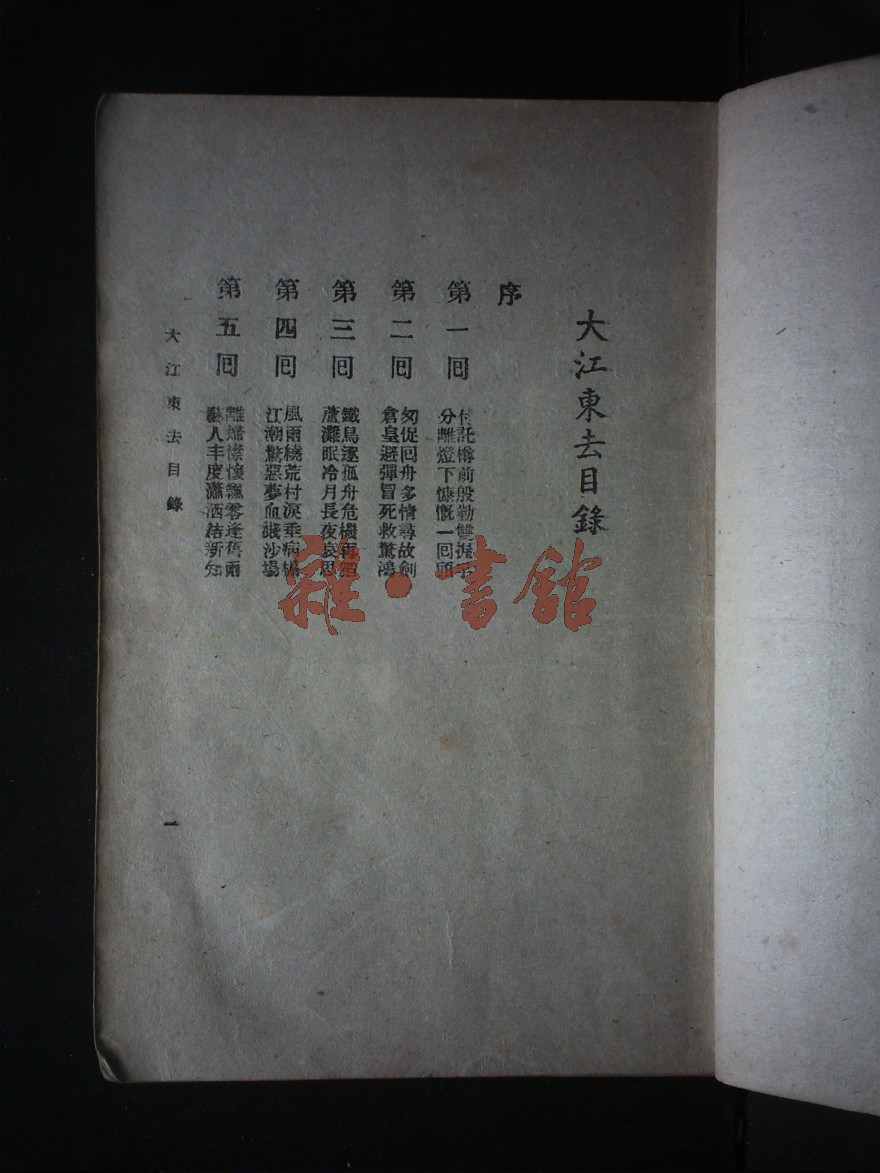 大江東去目錄
序
第一回
付託樽前殷勤雙握手
分離燈下慷慨一回頭
第二回
匆促回舟多情尋故劍
倉皇避彈冒死救驚鴻
第三回
鐵鳥逐孤舟危機再蹈
蘆灘眠冷月長夜哀思
第四回
風雨繞荒村淚垂病榻
江潮驚惡夢血濺沙場
第五回
離婦襟懷飄零逢舊雨
藝人丰度瀟洒結新知
大江東去目錄
一
雜·書館